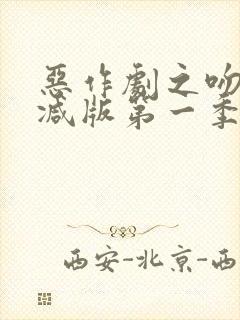 惡作劇之吻
減版第一季
西安-北京-西